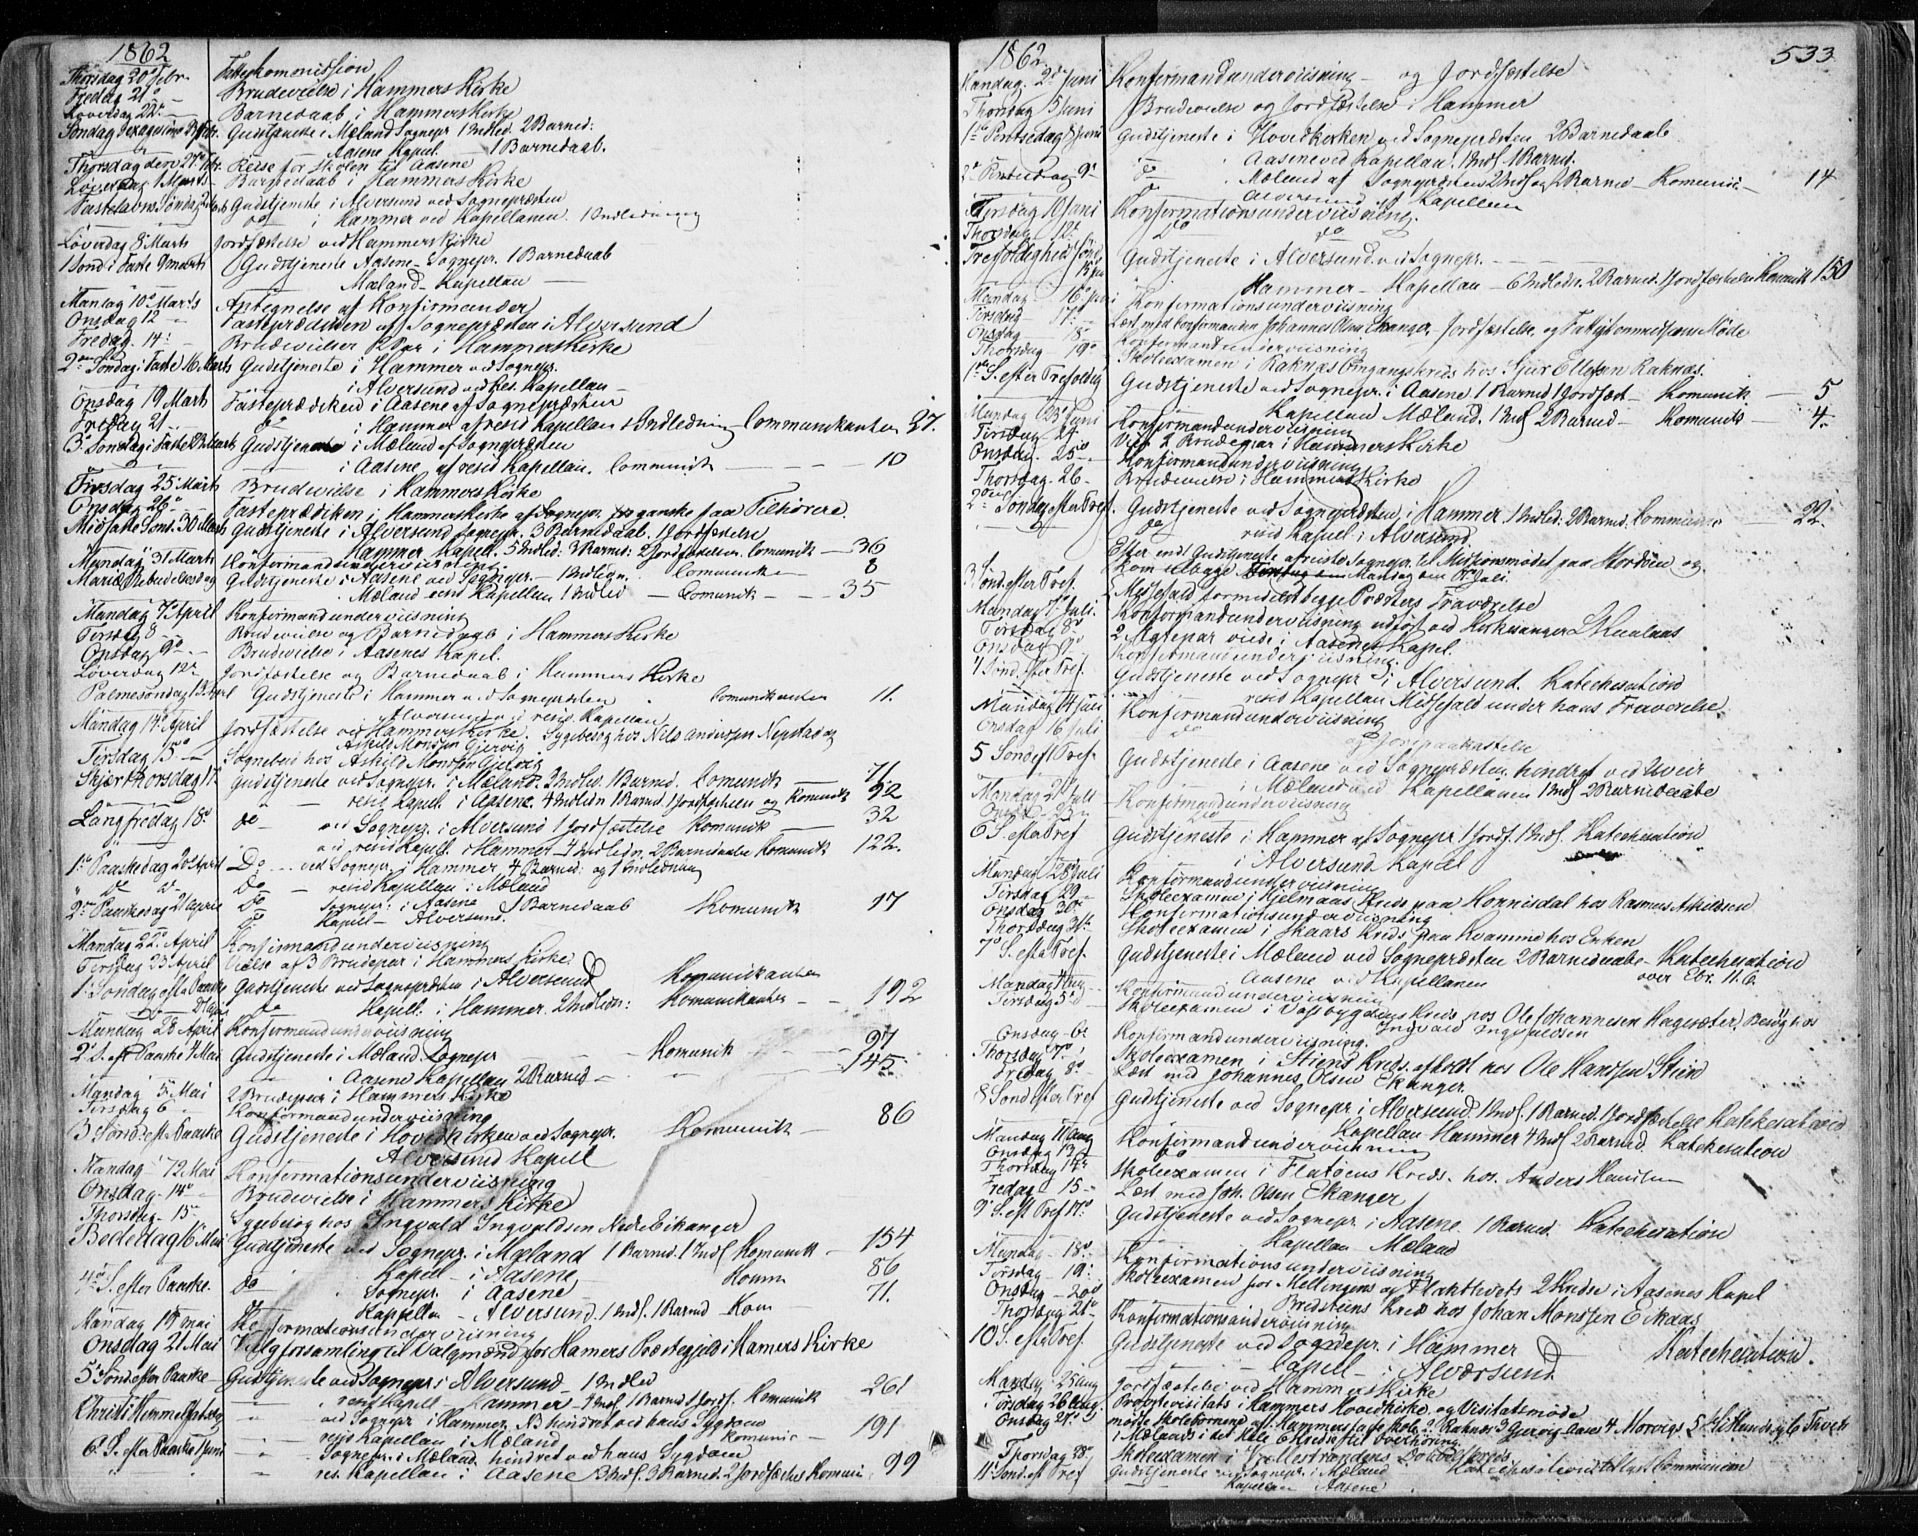 1862
Thorsdag 20 Febr. Fattigkommission
Fredag 21 - Brudevielse i Hammers Kirke
Løverdag 22 - Barnedaab i Hammers Kirke
Søndag Sexagesima 23 Febr. Gudstjeneste i Mæland Sognepr. 1 Indled. 2 Barned:
Aasene Kapel. - 1 Barnedaab.
Thorsdag den 27 Febr. Reise for Skolen til Aasene
Løverdag 1 Marts - Barnedaab i Hammers Kirke
Fastelavns Søndag 2 Marts Gudstjeneste i Alversund ved Sognepræsten
do i Hammer ved Kapellanen. 1 Indledning
Løverdag 8 Marts Jordfæstelse ved Hammers Kirke
1 Sønd i Faste 9 Marts Gudstjeneste Aasene - Sognepr. 1 Barnedaab
Mæland - Kapellan -
Mandag 10 Marts Antegnelse af Konfirmander
Onsdag 12 - Fasteprædiken af Sognepræsten i Alversund
Fredag 14 - Brudevielser 2 Par i Hammers Kirke
2den Søndag i Faste 16 Marts Gudstjeneste i Hammer ved Sognepr.
i Alversund ved Res. Kapellan -
Onsdag 19 Marts Fasteprædiken i Aasene af Sognepræsten
Fredag 21 - do i Hammer af resid Kapellan 1 Indledning Communikanter 27.
3 Søndag i Faste 23 Marts Gudstjeneste i Mæland af Sognepræsten
i Aasene af resid Kapellan. Communik - - - 10
Tirsdag 25 Marts Brudevielse i Hammers Kirke
Onsdag 26 - Fasteprædiken i Hammers Kirke af Sognepr. for ganske faa Tilhørere
Midfaste Sønd. 30 Marts Gudstjeneste i Alversund Sognepr. 3 Barnedaab. 1 Jordfæstelse
Hammer Kapell. 5 Indled. 3 Barned. 2 Jordfæstelser. Comunik - 36
Mandag 31 Marts Konfirmandunderviisning
Mariæ Bebudelsesdag Gudstjeneste i Aasene ved Sognepr. - 1 Indledn. Comunik - 8
Mæland resid Kapellan 1 Indled - Comunik - - - 35
Mandag 7 April Konfirmandunderviisning
Tirsdag 8 - Brudevielse og Barnedaab i Hammers Kirke
Onsdag 9 - Brudevielse i Aasenes Kapel.
Løverdag 12 - Jordfæstelse og Barnedaab i Hammers Kirke
Palmesøndag 13 April Gudstjeneste i Hammer ved Sognepræsten Comunikanter 11.
Alversund ved resid Kapellan
Mandag 14 April Jordfæstelse ved Hammers Kirke. Sygebesøg hos Nils Andersen Nepstad og
Askild Monsen Gjervig
Tirsdag 15 - Sognebud hos Askild Monsen Gjervig
Skjærthorsdag 17 Gudstjeneste ved Sognepr. i Mæland. 3 Indled. 1 Barned. Comunik - 71
- resid Kapel. i Aasene. 4 Indledn 1 Barned. 1 Jordfæstelse og Komunik 52
Langfredag 18 do - ved Sognepr. i Alversund 1 Jordfæstelse Komunik - 32
ved resid Kapell. i Hammer 4 Indledn. 2 Barnedaabe Komunik 122.
1 Paaskedag 20 April Do - ved Sognepr. i Hammer. 4 Barned: og 1 Indledning
" do Do - resid Kapellan i Mæland
2 Paaskedag 21 April Do Sognepr. i Aasene 1 Barnedaab Komunik 17
Do Kapel - Alversund
Mandag 22 April Konfirmandunderviisning
Tirsdag 23 April Vielse af 3 Brudepar i Hammers Kirke
1 Søndag efter Paaske Gudstjeneste ved Sognepræsten i Alversund Komunikanter
27 April do Kapell. i Hammer. 2 Indledn: Komunikanter - - 192
Mandag 28 April Konfirmandunderviisning
2 S. eft Paaske 4 Mai Gudstjeneste i Mæland Sognepr Komunik - - 97
Aasene Kapellan 2 Barned - - 145
Mandag 5 Mai 2 Brudepar i Hammers Kirke
Tirsdag 6 Konfirmandunderviisning
3 Sønd. eft Paaske Gudstjeneste i Hovedkirken ved Sognepr. Komunik - 86
Alversund Kapell
Mandag 12 Mai Konfirmationsunderviisning
Onsdag 14 - Brudevielse i Hammers Kirke
Thorsdag 15 - Sygebesøg hos Ingvald Ingvaldsen Nedre Eikanger
Bededag 16 Mai Gudstjeneste ved Sognepr. i Mæland 1 Barned. 1 Indl. Komunik - 154
Kapell - i Aasene 86
4 S. efter Paaske. do Sognepr. i Aasene Komm 71.
Kapellan - Alversund. 1 Indl. 1 Barned Kom
Mandag 19 Mai Konfirmationsunderviisning
Onsdag 21 Mai Valgforsamling til Valgmænd for Hamers Præstegjeld i Hamers Kirke
5 Sønd efter Paaske - Gudstjeneste ved Sognepr. i Alversund - 1 Indled
resid Kapell - Hammer - 4 Indl. 1 Barned 1 Jordf. Komunik 261
Christi Himmelfartsdag ved Sognepr. i Hammer. NB hindret ved hans Sygdom
resid Kapellan i Mæland Komunic - 191
6 S. efter Paaske 1 Juni Sognepr. i Mæland hindret ved hans Sygdom
res. Kapellan i Aasene 13 Indl. 3 Barned. 2 Jordfæstelser Komuni 99
1862
533
Mandag 2 Juni Konfirmandunderviisning - og Jordfæstelse
Thorsdag 5 Juni Brudevielse og Jordfæstelse i Hammer
1 Pintsedag 8 Juni Gudstjeneste i Hovedkirken ved Sognepræsten 2 Barnedaab
do Aasene ved Kapellan. 1 Indl. 1 Barned.
2 Pintsedag 9 do Mæland af Sognepræsten 2 Indl og 2 Barned - Komunic - 14
do Alversund af Kapellan
Tirsdag 10 Juni Konfirmationsunderviisning.
Thorsdag 12 do do
Trefoldigheds Søndag 15 Juni Gudstjeneste i Alversund ved Sognepr. - - - -
Hammer - Kapellan - 6 Indledn. 2 Barned. 1 Jordfæstelse Komunik 150
Mandag 16 Juni Konfirmationsunderviisning
Tirsdag 17 Læst med Confirmanden Johannes Olsen Ekanger. Jordfæstelse, og Fattigkommissions Møde
Onsdag 18 Konfirmandunderviisning
Thorsdag 19 Skoleexamen i Raknæs Omgangskreds hos Sjur Ellefsen Raknæs.
1 S. efter Trefoldigh Gudstjeneste ved Sognepr. i Aasene 1 Barned 1 Jordfæst - Komunik - 5
Kapellan Mæland. 1 Indl 2 Barned - Komunik - 4.
Mandag 23 Juni Konfirmandunderviisning
Tirsdag 24 Viet 2 Brudepar i Hammers Kirke
Onsdag 25 Konfirmandunderviisning
Thorsdag 26 - Brudevielse i Hammers Kirke
2 Søndag efter Tref. Gudstjeneste ved Sognepræsten i Hammer 1 Indled. 2 Barned. Communic 22.
do resid Kapel i Alversund
Efter endt Gudstjeneste afreiste Sognepr. til Missionsmødet paa Stordøen og
kom tilbage Mandag den 7 Juli.
3 Sønd. efter Tref. Messefald formedelst begge Præsters Fraværelse
Mandag 7 Juli Konfirmandunderviisning udført ved Kirkesanger
Tirsdag 8 2 Ægtepar viede i Aasenes Kapel.
Onsdag 9 Konfirmandunderviisning.
4 Sønd. efter Tref. Gudstjeneste ved Sognepr i Alversund. Katechesation
resid Kapellan Messefald under hans Fraværelse.
Mandag 14 Juli Konfirmandunderviisning
Onsdag 16 Juli do og Jordpaakastelse
5 Sønd ef Tref. Gudstjeneste i Aasene ved Sognepræsten hindret ved Uveir
i Mæland ved Kapellanen 1 Indl 2 Barnedaabe
Mandag 21 Juli Konfirmandunderviisning
Onsdag 23 do
6 S. efter Tref Gudstjeneste i Hammer af Sognepr. 1 Jordf. 1 Indl. Katechesation
i Alversund Kapel
Mandag 28 Juli Konfirmandunderviisning
Tirsdag 29 Skoleexamen i Hjelmaas Kreds paa Hornisdal hos Rasmus Askildsen
Onsdag 30 Konfirmationsunderviisning
Thorsdag 31 Skoleexamen i Skaars Kreds paa Kvamme hos Enken
7 S. efter Tref. Gudstjeneste i Mæland ved Sognepræsten 2 Barnedaabe - Katechesation
Aasene ved Kapellanen over Ebr. 11. 6.
Mandag 4 Aug. Konfirmandunderviisning
Tirsdag 5 Skoleexamen i Vassbygdens Kreds hos Ole Johannesen Hagesæter, Besøg hos
Ingvald Ingvaldsen
Onsdag 6 Konfirmandunderviisning.
Thorsdag 7 Skoleexamen i Steens Kreds afholdt hos Ole Hansen Steen
Fredag 8 Læst med Johannes Olsen Ekanger.
8 Sønd efter Tref Gudstjeneste ved Sognepr. i Alversund. 1 Indl. 1 Barned. 1 Jordfæstelse Katechesation
Kapellan Hammer 4 Indl. 2 Barned. Katechesation
Mandag 11 Aug Konfirmandunderviisning
Onsdag 13 do
Thorsdag 14 Skoleexamen i Flatøens Kreds. hos. Anders
Fredag 15 Læst med Joh. Olsen Ekanger
9 S. eft Tref 17 Gudstjeneste ved Sognepr. i Aasene. 1 Barned. Katechesation
Kapellan Mæland
Mandag 18 Konfirmationsunderviisning
Tirsdag 19 Skoleexamen for Mellingens og 2 Kredse i Aasenes Kapel
Onsdag 20 Bredsteens Kreds hos Johan Monssen Eikaas
Thorsdag 21 Konfirmationsunderviisning
10 S. efter Tref. Gudstjeneste ved Sognepr. i Hammer Katechesation.
Kapell - i Alversund
Mandag 25 Aug Jordfæstelse ved Hammers Kirke
Tirsdag 26 Aug. Provstevisitats i Hammers Hovedkirke og Visitatsmøde
Onsdag 27 mødte Skolebørnene af Hammers faste Skole, 2 Raknæs 3 Gjervig 4 Morvigs 5
i Mælands i det hele 6 Kredse til Overhøring.
Thorsdag 28 Skoleexamen i
11 Sønd. eft Tref Gudstjeneste ved Sognepr. i Mæland Katechesation
Kapellan Aasene